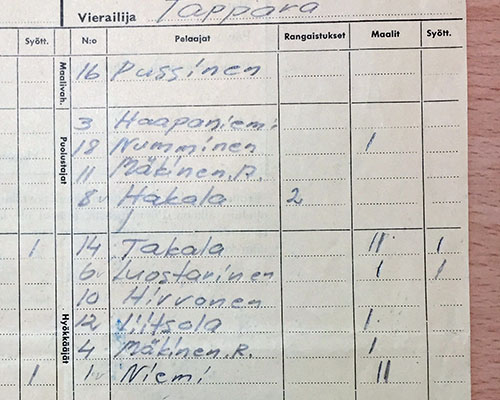 Vierailija Tappara
Syött. N:o Pelaajat Rangaistukset Maalit Syött.
Maalivah.
16 Pussinen
Puolustajat
3 Haapaniemi
18 Numminen I
11 Mäkinen.A.
8v Hakala 2
Hyökkääjät
1 14 Takala II 1
6v Luostarinen I 1
10 Hirvonen
12 Liitsola I
4 Mäkinen.R. I
1 1v Niemi II